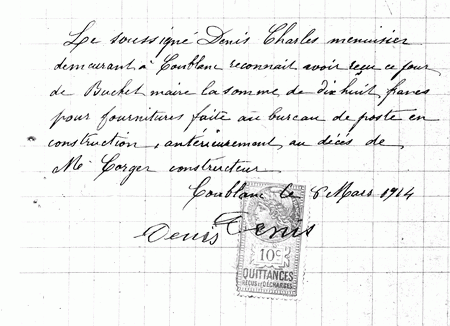 Le soussigné Denis Charles menuisier
demeurant à Coublanc reconnait avoir reçu ce jour
de Buchet maire la somme de dix huit francs
pour fournitures faite au bureau de poste en
construction, antérieurement au décés de
Mr Corger constructeur
Coublanc le 8 Mars 1914
Denis Denis
10c
QUITTANCES
REÇUS ET DÉCHARGES